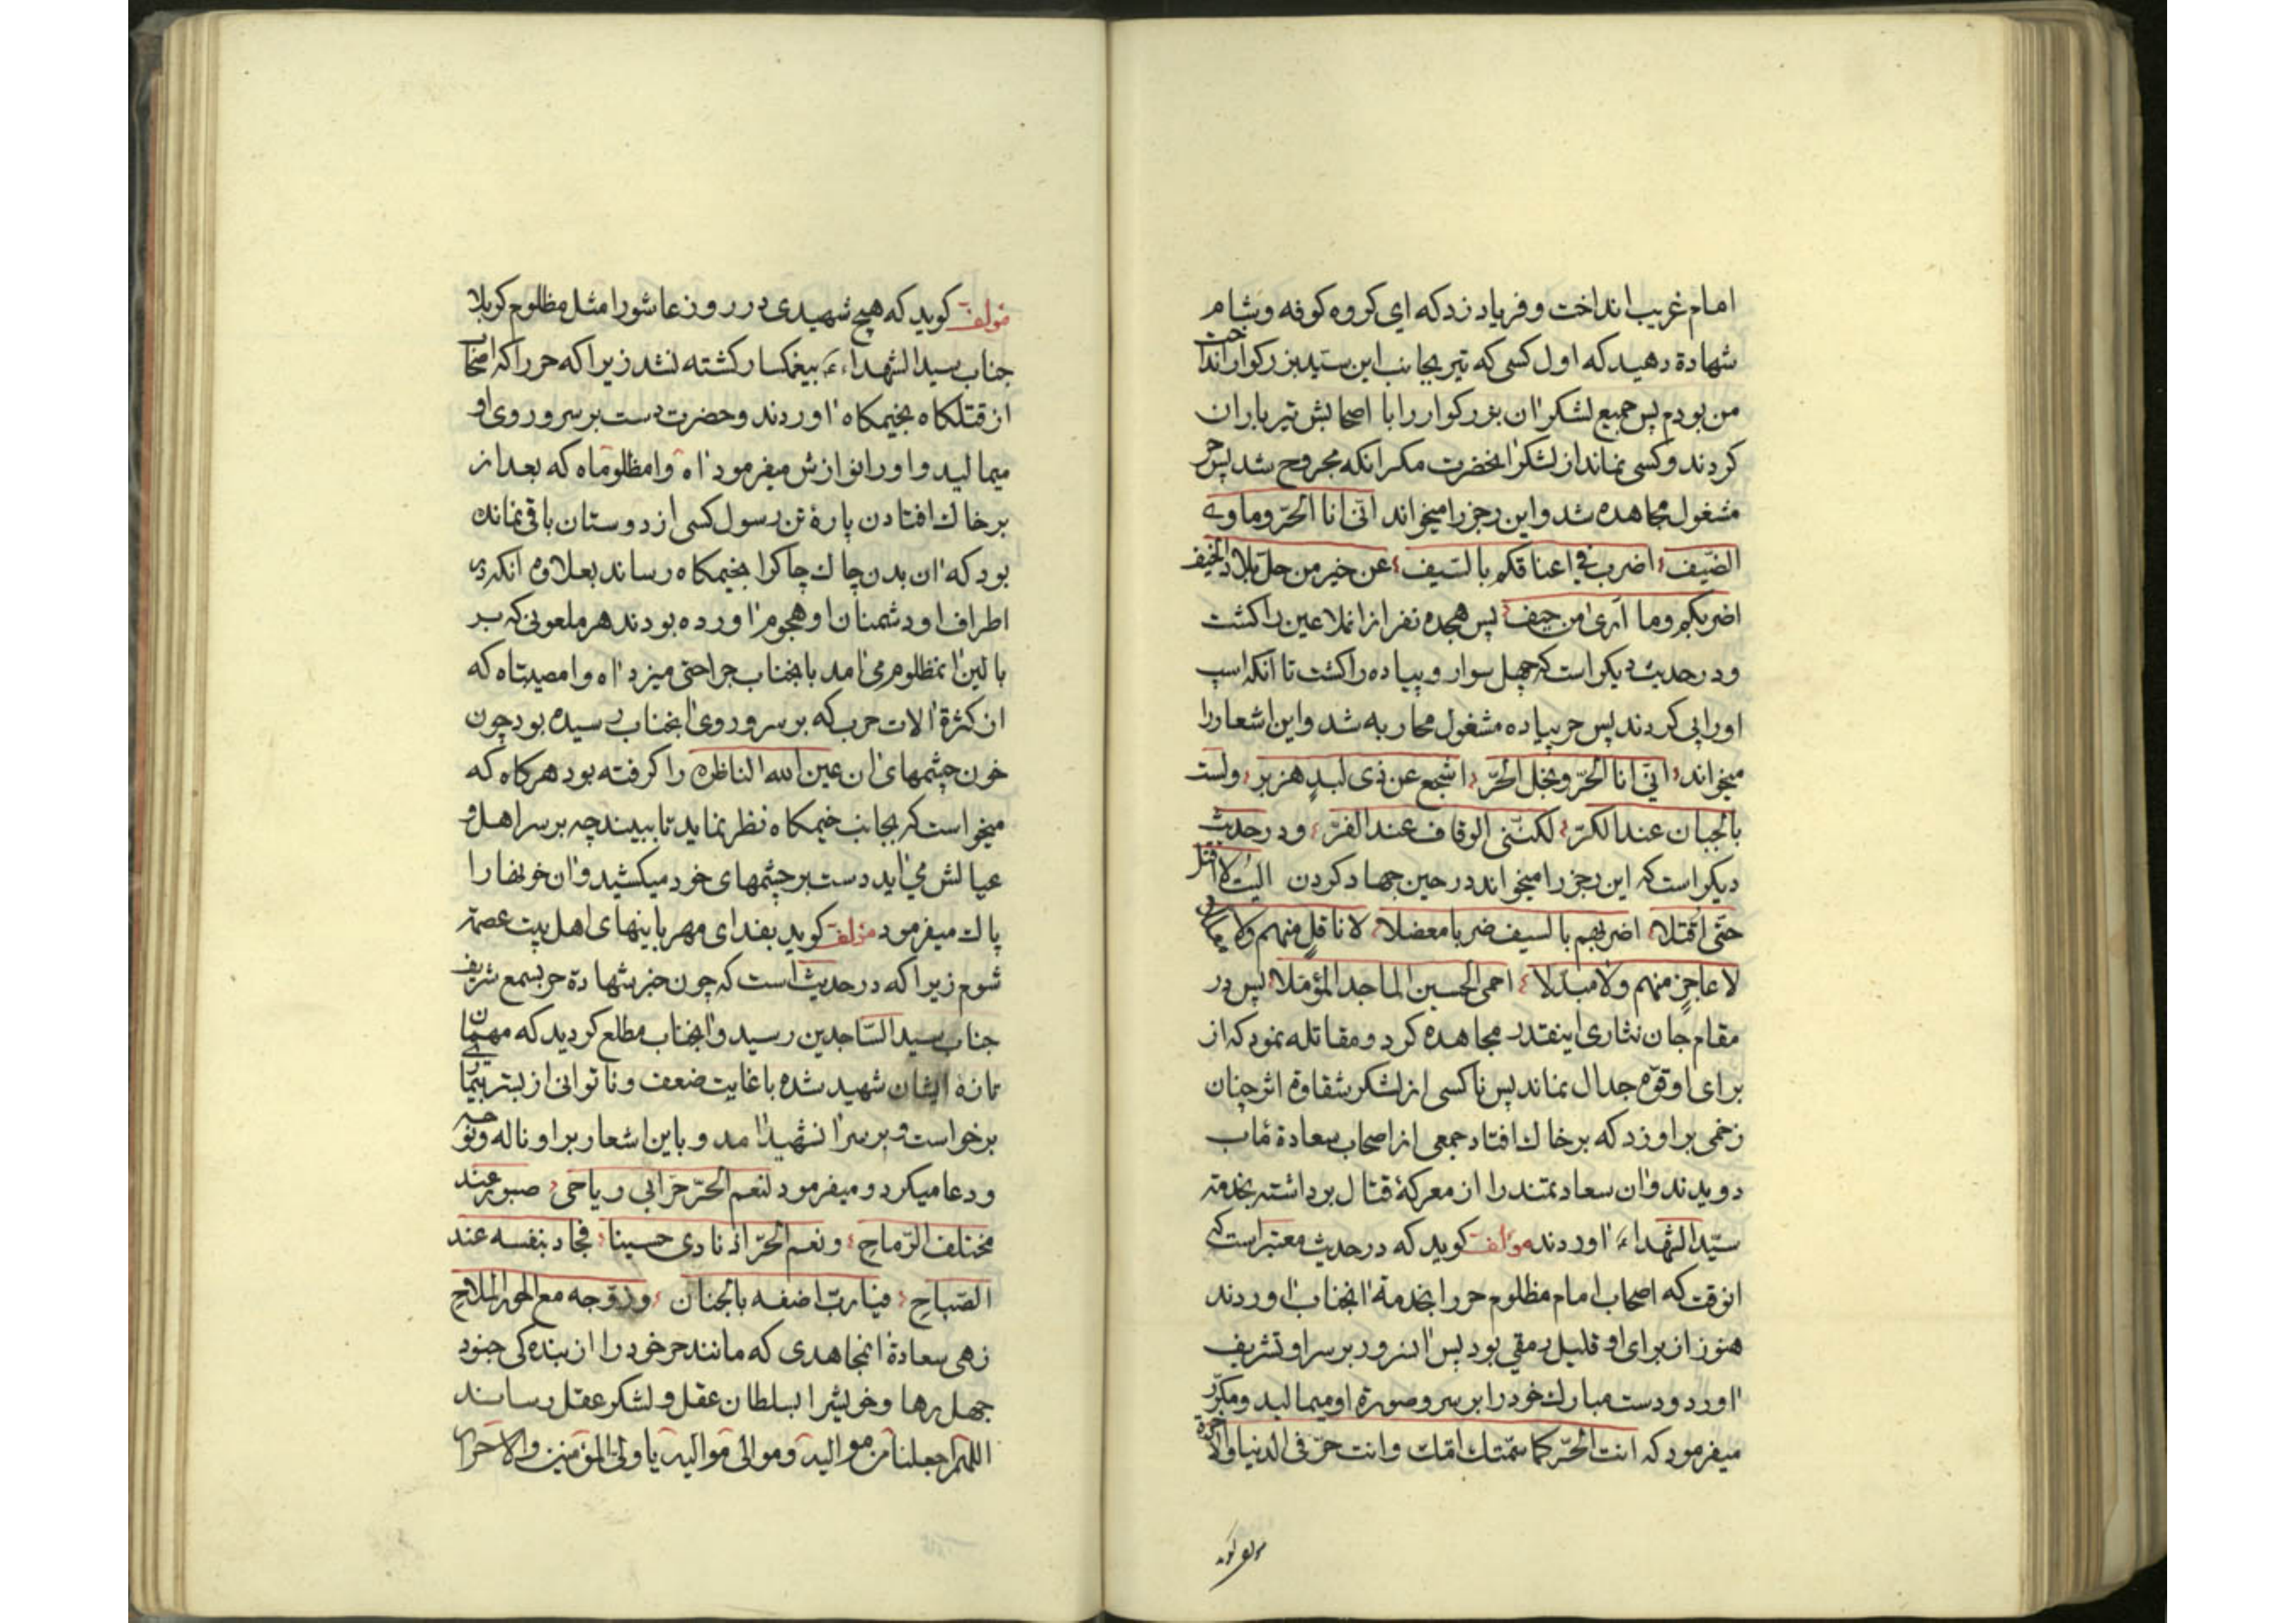 امام غریب انداخت و فریاد زد که ای کروه کوفه و شام
شهادة دهید که اول کسی که تیر بجانب این سید بزرکوار انداخت
من بودم پس جمیع لشکر ان بزرکوار را با اصحابش تیر باران
کردند و کسی نماند از لشکر انحضرت مکر انکه مجروح شد پس حر
مشغول مجاهده شد و این رجز را میخواند انی انا الحرّ و ماوی
الضیف اضرب فی اعناقکم بالسّیف عن خیر من حل بلاد الخیف
اضربکم و ما اری من حیف پس هجده نفر از انملاعین را کشت
و در حدیث دیکر است که چهل سوار و پیاده را کشت تا انکه اسب
او را پی کردند پس حر پیاده مشغول محاربه شد و این اشعار را
میخواند انّی انا الحرّ و نجل الحرّ اشجع عن ذی لبدٍ هزبر و لست
بالجبان عند الکرّ لکنّنی الوقاف عند الفرّ و در حدیث
دیکر است که این رجز را میخواند در حین جهاد کردن الیت لا اقتل
حتّی اقتلا اضربهم بالسیف ضربا معضلا لا ناقلٍ منهم ولا
لا عاجزٍ منهم ولا مبدّلا احمی الحسین الماجد المؤمّلا پس در
مقام جان نثاری اینقدر مجاهده کرد و مقاتله نمود که از
برای او قوّه جدال نماند پس ناکسی از لشکر شقاوة اثر چنان
زخمی بر او زد که بر خاك افتاد جمعی از اصحاب سعادة مٱب
دویدند و ان سعادتمند را از معرکهٔ قتال برداشته بخدمة
سیّد الشهداء ء اوردند مولف کوید که در حدیث معتبر است که
انوقت که اصحاب امام مظلوم حر را بخدمة انجناب اوردند
هنوز از برای او قلیل رمقی بود پس انسرور بر سر او تشریف
اورد و دست مبارك خود را بر سر و صورة او میمالید و مکرّر
میفرمود که انت الحرّ کما سمّتك امّك و انت حرّ فی الدنیا و الاخرة
مولف کوید
مولف کوید که هیچ شهیدی در روز عاشورا مثل مظلوم کربلا
جناب سید الشهداء ء بیغمکسار کشته نشد زیرا که حر را که اصحاب
از قتلکاه بخیمکاه اوردند و حضرت دست بر سر و روی او
میمالید و او را نوازش میفرمود اه وا مظلوماه که بعد از
بر خاك افتادن پارهٔ تن رسول کسی از دوستان باقی نمانده
بود که ان بدن چاك چاکرا بخیمکاه رساند بعلاوه انکه در
اطراف او دشمنان او هجوم اورده بودند هر ملعونی که بر
بالین انمظلوم می امد بانجناب جراحتی میزد اه وا مصیبتاه که
از کثرة الات حرب که بر سر و روی انجناب رسیده بود چون
خون چشمهای ان عین الله الناظره را کرفته بود هر کاه که
میخواست که بجانب خیمکاه نظر نماید تا ببیند چه بر سر اهل و
عیالش می اید دست بر چشمهای خود میکشید و ان خونها را
پاك میفرمود مولف کوید بفدای مهربانیهای اهل بیت عصمة
شوم زیرا که در حدیث است که چون خبر شهادة حر بسمع شریف
جناب سید السّاجدین رسید و انجناب مطلع کردید که مهمان
تازهٔ ایشان شهید شده با غایت ضعف و ناتوانی از بستر بیماری
برخواست و بر سر انشهید امد و باین اشعار بر او ناله و نوحه
و دعا میکرد و میفرمود لنعم الحرّ حرّ ابی ریاحی صبور عند
مختلف الرّماحِ و نعم الحرّ اذ نادی حسینا فجاد بنفسه عند
الصّباحِ فیا ربّ اضفه بالجنان و زوّجه مع الحور الملاح
زهی سعادة انمجاهدی که مانند حر خود را از بنده کی جنود
جهل رها و خویش را بسلطان عقل و لشکر عقل رساند
اللهم اجعلنا من موالیه و موالی موالیه یا ولی المؤمنین و الاحرار